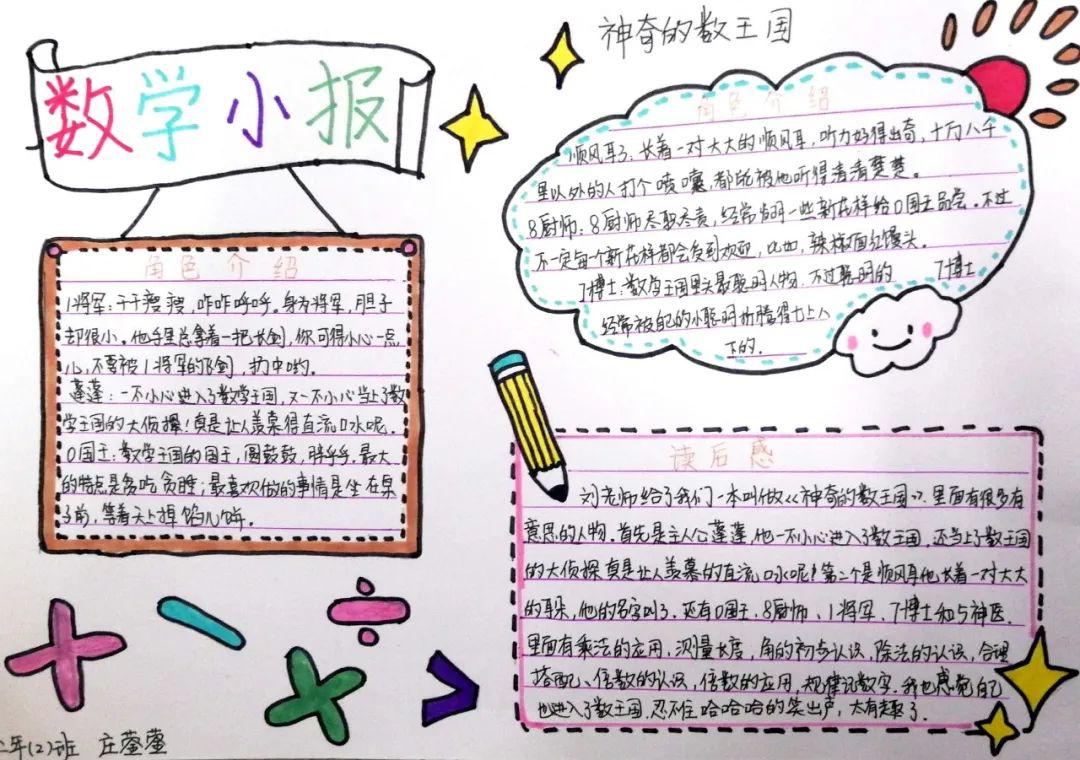 数学小报
神奇的数王国
角色介绍
1将军：干干瘦瘦，咋咋呼呼。身为将军，胆子
却很小。他手里总拿着一把长剑，你可得小心一点
儿，不要被1将军的飞剑，扔中哟。
蓬蓬：一不小心进入了数学王国，又一不小心当上了数
学王国的大侦探！真是让人羡慕得直流口水呢。
0国王：数学王国的国王，圆鼓鼓，胖乎乎。最大
的特点是贪吃贪睡；最喜欢做的事情是坐在桌
子前，等着天上掉馅儿饼。
角色介绍
顺风耳3：长着一对大大的顺风耳，听力好得出奇，十万八千
里以外的人打个喷嚏，都能被他听得清清楚楚。
8厨师：8厨师尽职尽责，经常发明一些新花样给0国王品尝。不过
不一定每个新花样都会受到欢迎，比如，辣椒面红馒头。
7博士：数学王国里头最聪明人物，不过聪明的 7博士
经常被自己的小聪明折腾得七上八
下的.
读后感
刘老师给了我们一本叫做《神奇的数王国》. 里面有很多有
意思的人物。首先是主人公蓬蓬，他一不小心进入了数王国，还当上了数王国
的大侦探真是让人羡慕的直流口水呢！第二个是顺风耳他长着一对大大
的耳朵，他的名字叫3. 还有0国王、8厨师、1将军、7博士和5神医.
里面有乘法的应用，测量长度，角的初步认识，除法的认识，合理
搭配、倍数的认识，倍数的应用，规律记数字. 我也感觉自己
也进入了数王国，忍不住哈哈哈的笑出声，太有趣了.
二年(2)班 庄蓥蓥